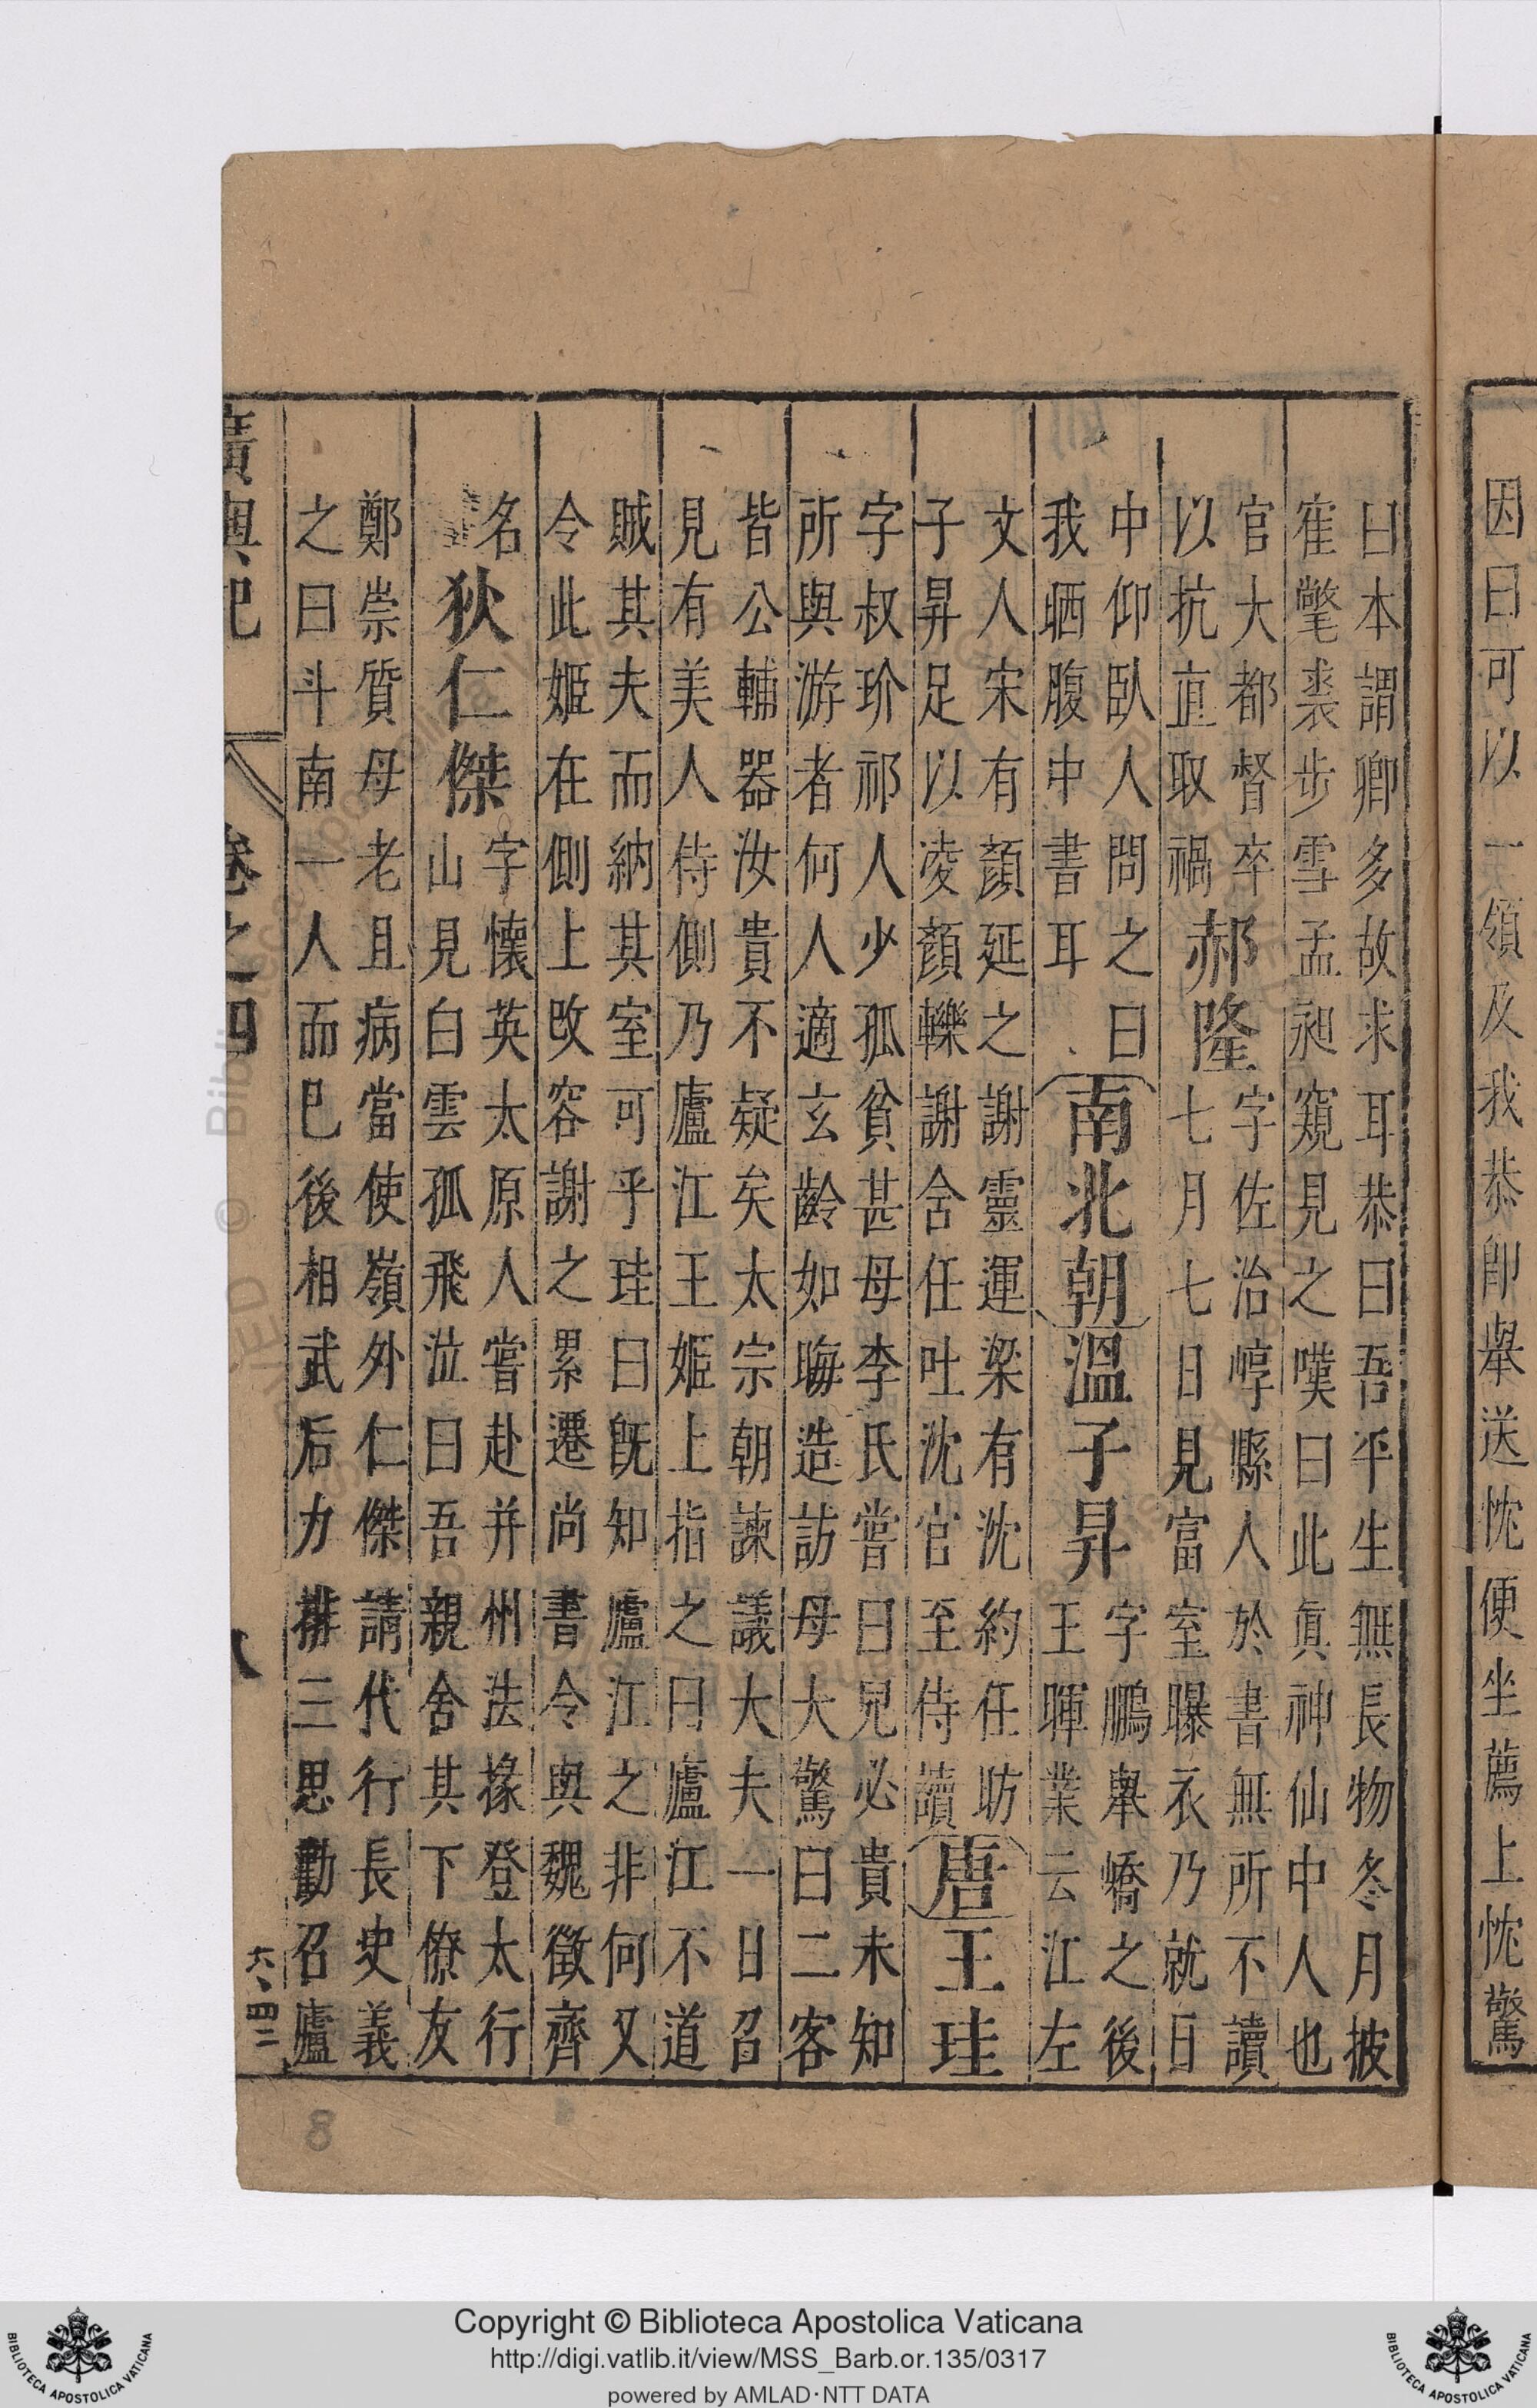 因曰可以一領及我恭卽舉送忱便坐薦上忱驚
曰本謂卿多故求耳恭曰吾平生無長物冬月披
寉氅裘步雪孟昶窺見之嘆曰此眞神仙中人也
官大都督卒
以抗直取禍
郝隆
字佐治崞縣人於書無所不讀
七月七日見富室曝衣乃就日
中仰臥人問之曰
我晒腹中書耳
南北朝
溫子昇
字鵬舉嶠之後
王暉業云江左
文人宋有顏延之謝靈運梁有沈約任昉
子昇足以凌顏轢謝舍任吐沈官至侍讀
唐
王珪
字叔玠祁人少孤貧甚母李氏嘗曰兒必貴未知
所與游者何人適玄齡如晦造訪母大驚曰二客
皆公輔器汝貴不疑矣太宗朝諫議大夫一日召
見有美人侍側乃廬江王姬上指之曰廬江不道
賊其夫而納其室可乎珪曰旣知廬江之非何又
令此姬在側上改容謝之累遷尚書令與魏徵齊
名
狄仁傑
字懷英太原人嘗赴并州法掾登太行
山見白雲孤飛泣曰吾親舍其下僚友
鄭崇質母老且病當使嶺外仁傑請代行長史義
之曰斗南一人而已後相武后力排三思勸召廬
廣輿記
卷之四
八
六、四二
8
Copyright © Biblioteca Apostolica Vaticana
http://digi.vatlib.it/view/MSS_Barb.or.135/0317
powered by AMLAD·NTT DATA
BIBLIOTECA APOSTOLICA VATICANA
BIBLIOTECA APOSTOLICA VATICANA